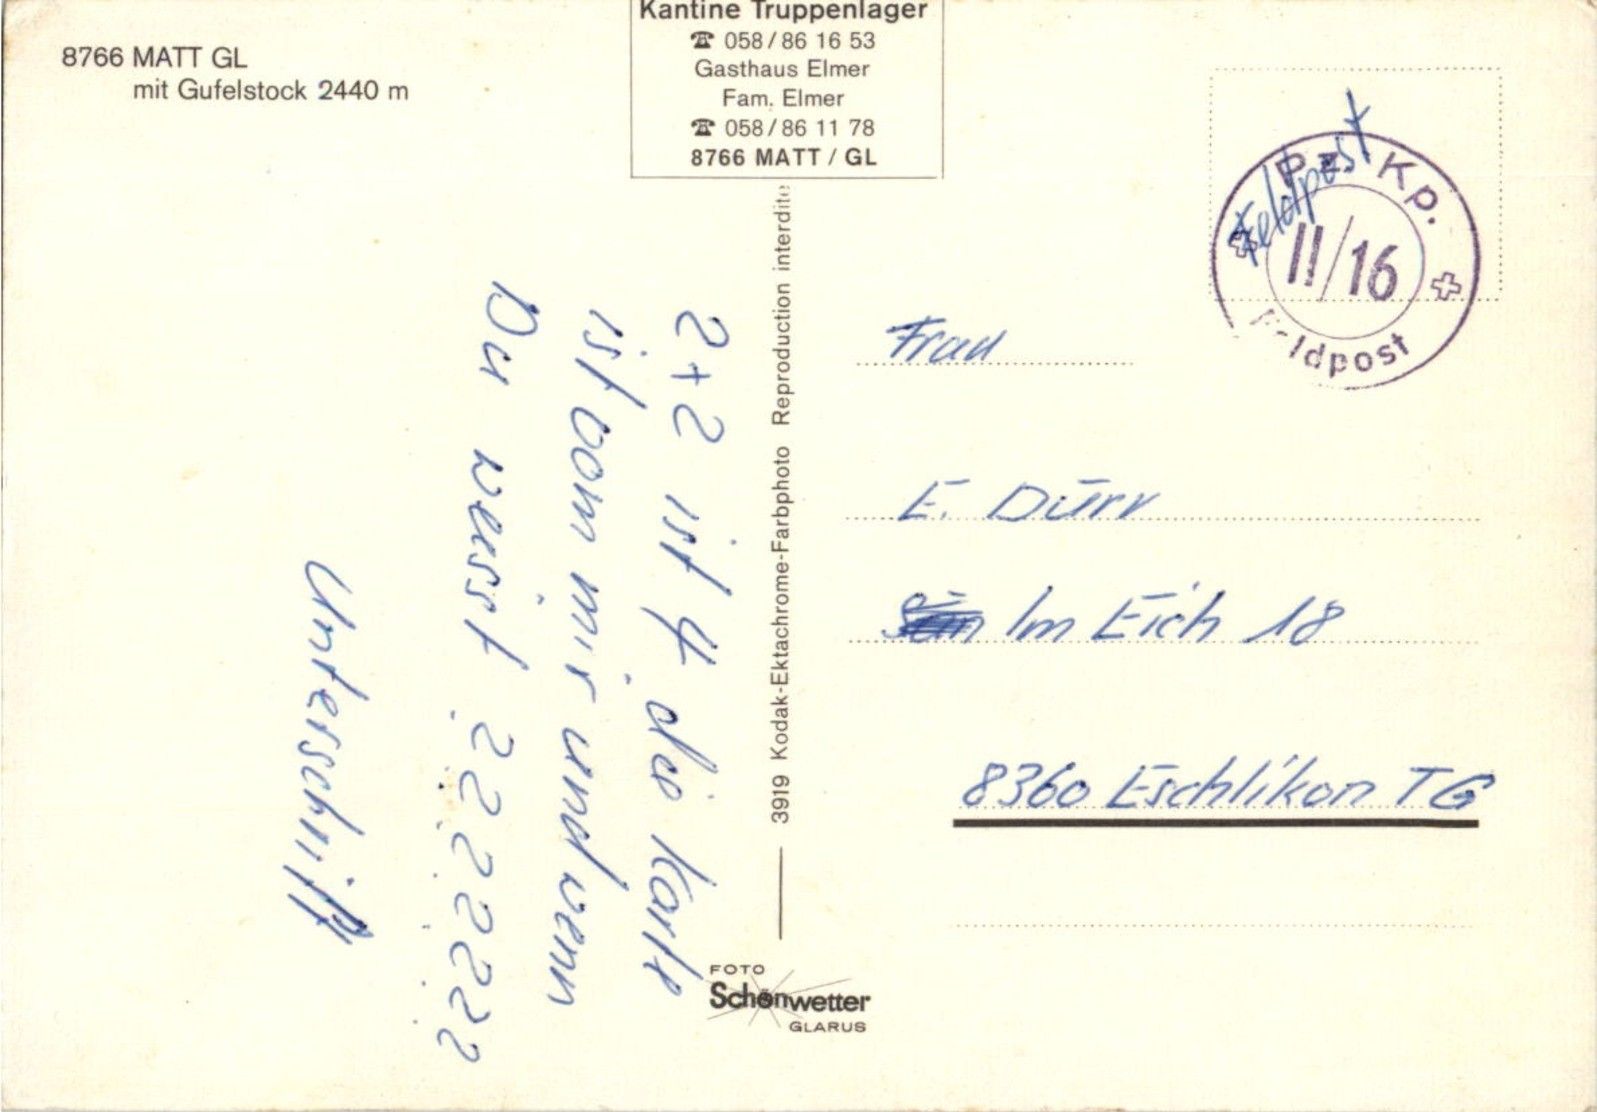 8766 MATT GL
mit Gufelstock 2440 m
Kantine Truppenlager
☎ 058/86 16 53
Gasthaus Elmer
Fam. Elmer
☎ 058/86 11 78
8766 MATT / GL
Feldpost
Pz. Kp.
II/16
Feldpost
2+2 ist 4 die Karte
ist vom mir und wenn
Du weisst ? ? ? ? ? ? ?
Unterschrift
3919 Kodak-Ektachrome-Farbphoto Reproduction interdite
Frau
E. Dürr
Im Eich 18
8360 Eschlikon TG
FOTO
Schönwetter
GLARUS